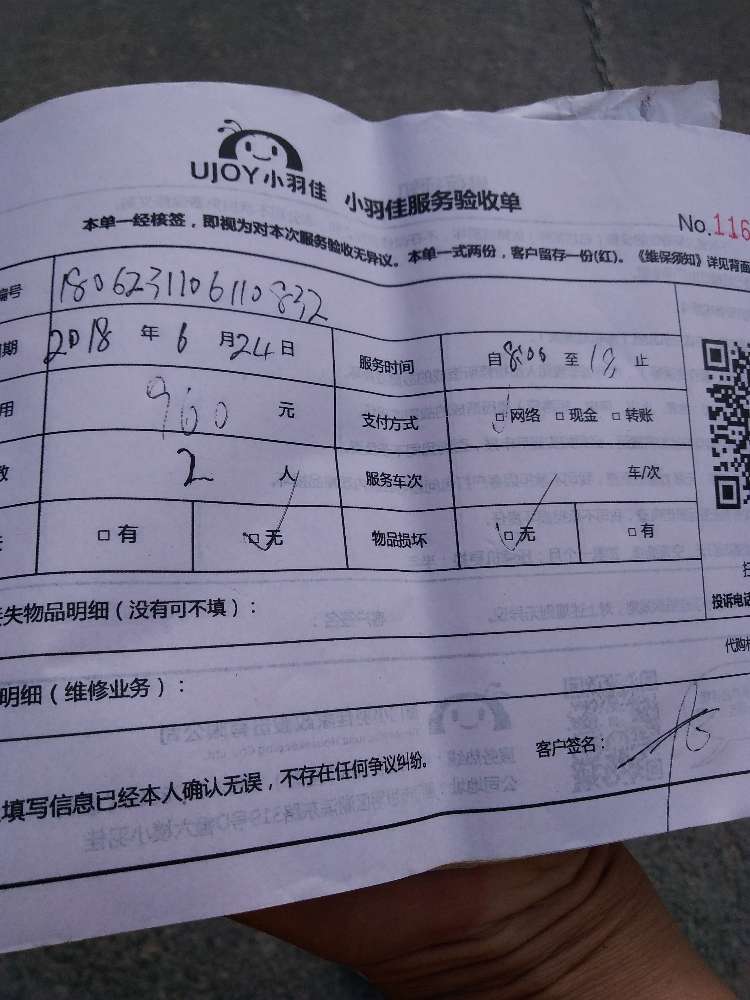 UJOY小羽佳 小羽佳服务验收单
No.116
本单一经核签，即视为对本次服务验收无异议。本单一式两份，客户留存一份(红)。《维保须知》详见背面
编号 1806231106110832
期 2018 年 6 月 24 日 服务时间 自 8:06 至 12 止
用 960 元 支付方式 □网络 □现金 □转账
数 2 人 服务车次 车/次
□有 □无 物品损坏 □无 □有
失物品明细（没有可不填）：
投诉电话
明细（维修业务）：
代购
填写信息已经本人确认无误，不存在任何争议纠纷。 客户签名：